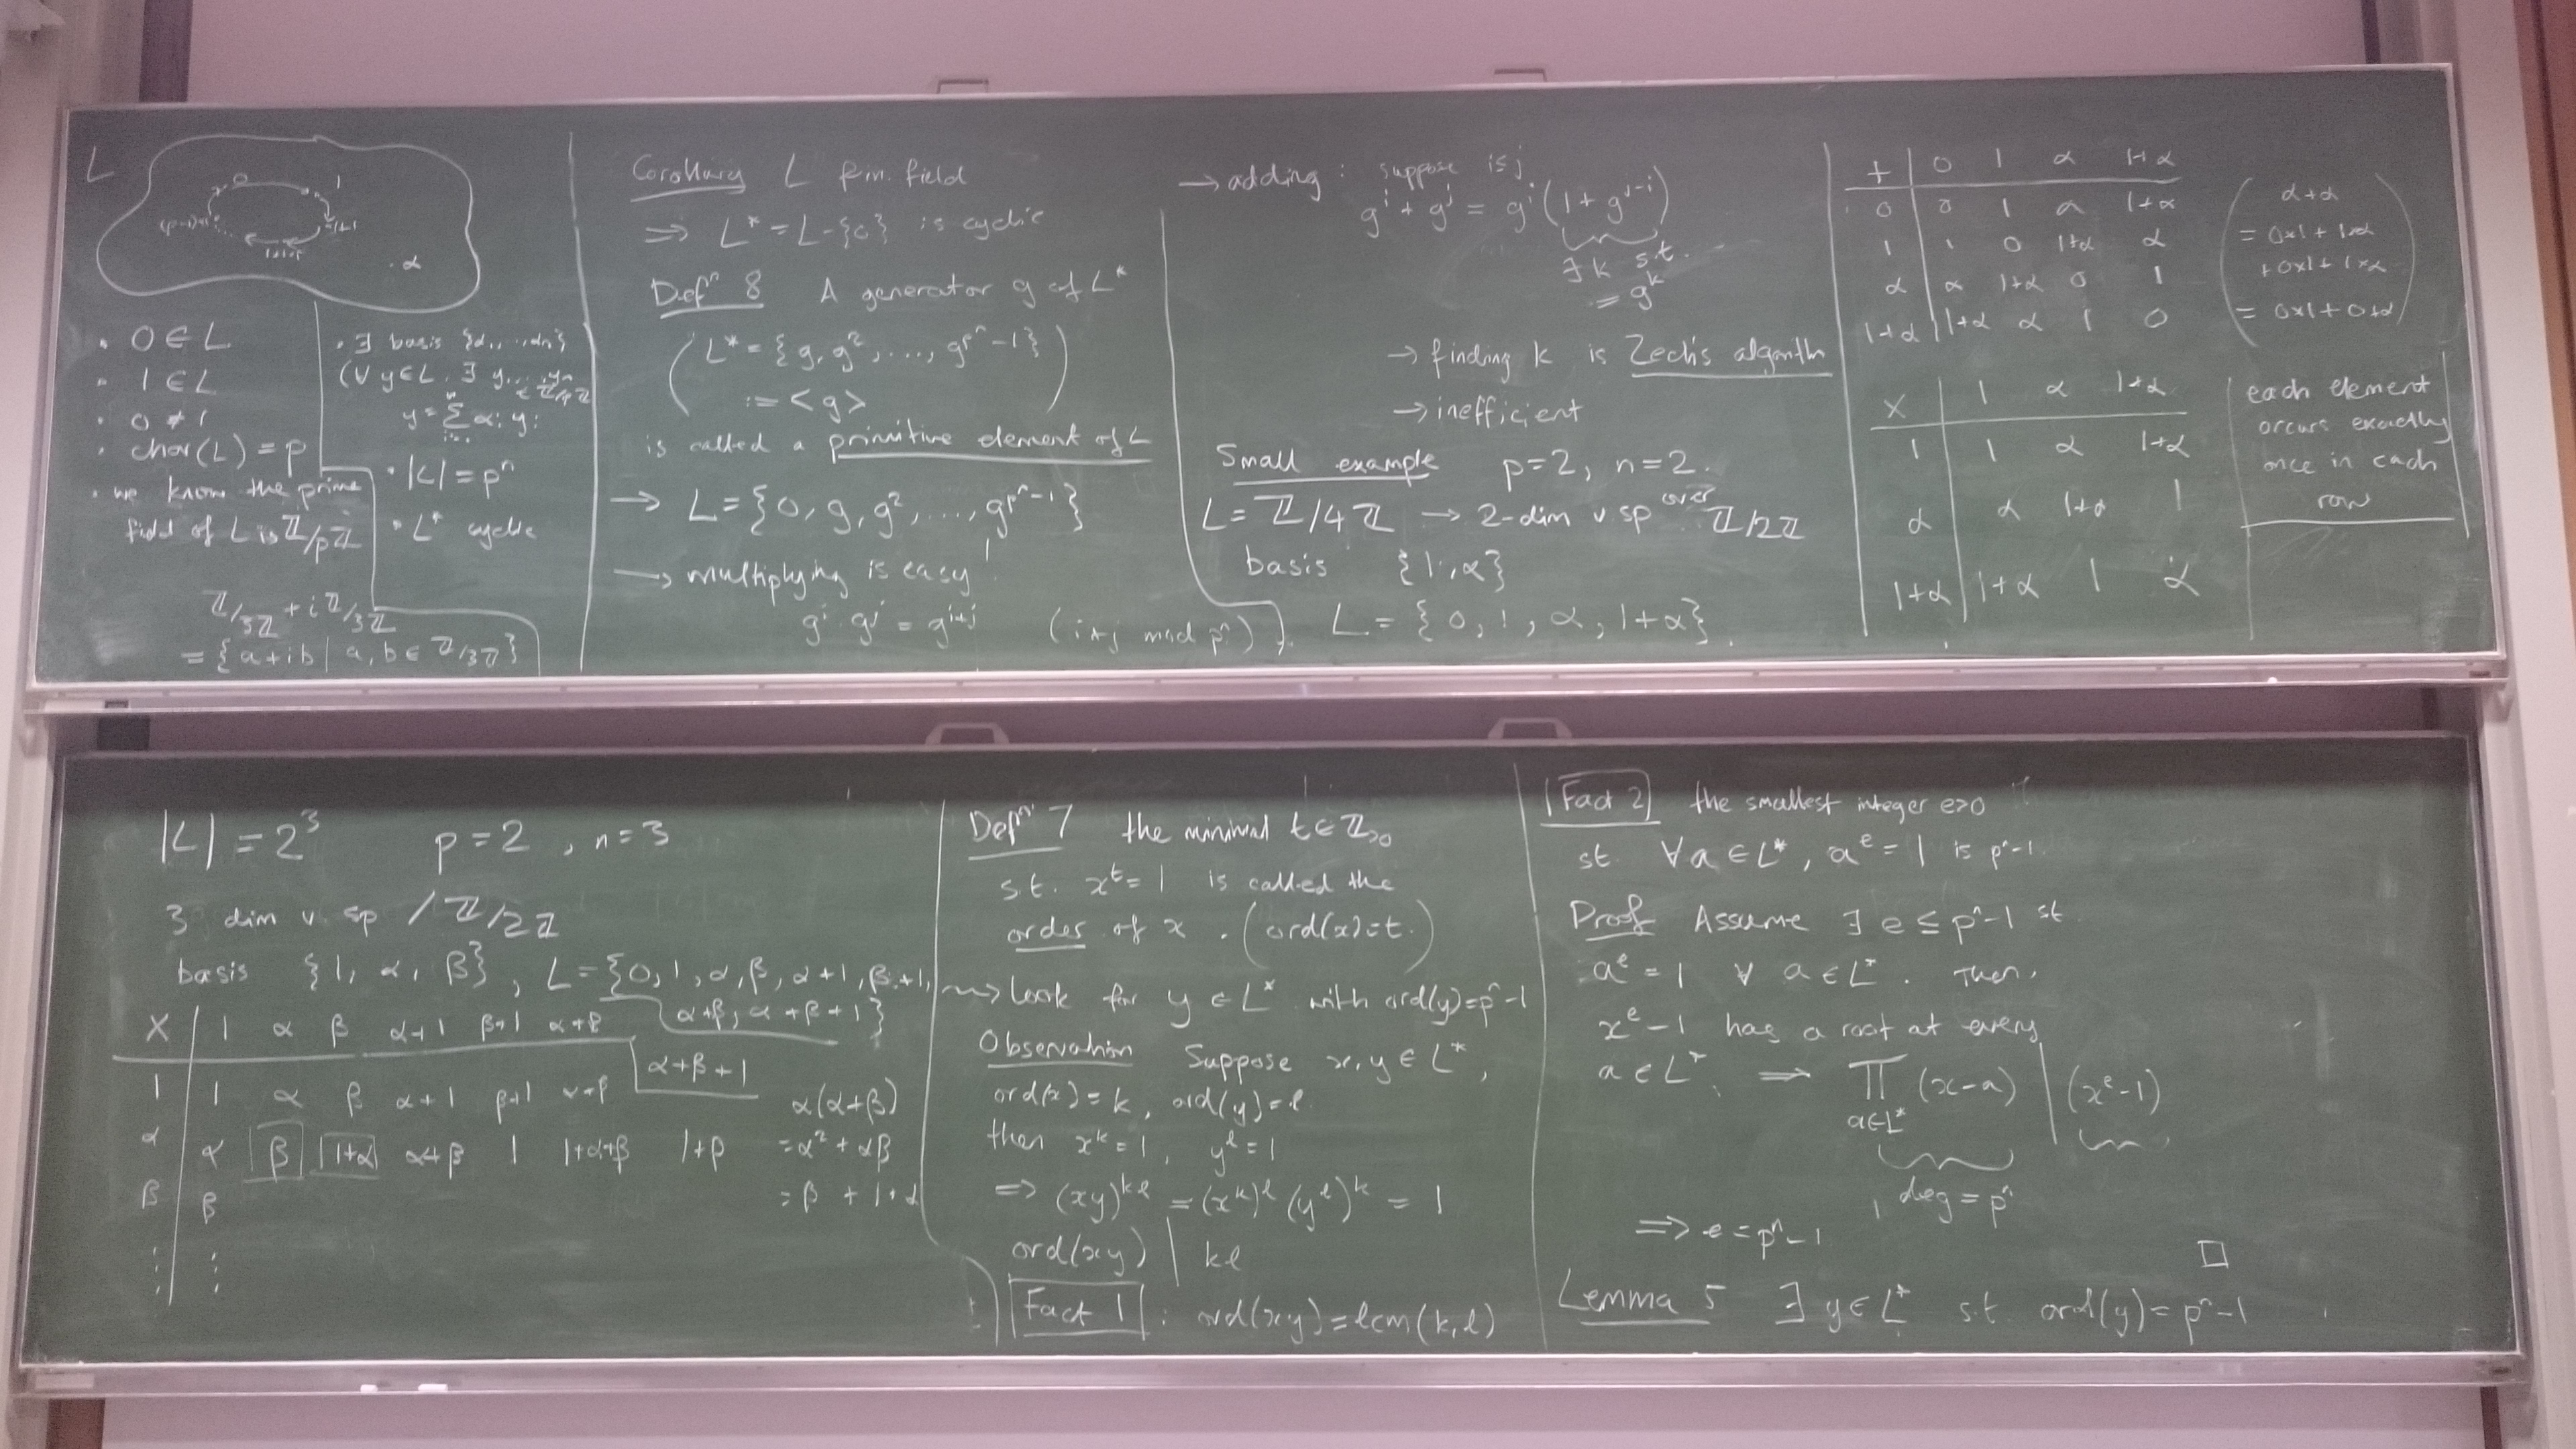 L
0
1
1+1
1+1+1
(p-1)×1
α
· 0 ∈ L
· 1 ∈ L
· 0 ≠ 1
· char(L) = p
· we know the prime
field of L is ℤ/pℤ
ℤ/3ℤ + iℤ/3ℤ
= {a+ib | a, b ∈ ℤ/3ℤ}
· ∃ basis {α₁, ..., αn}
(∀ y ∈ L, ∃ y₁...yn ∈ ℤ/pℤ
y = Σ αi yi
· |L| = pⁿ
· L* cyclic
Corollary L fin. field
⇒ L* = L-{0} is cyclic
Defⁿ 8 A generator g of L*
(L* = {g, g², ..., g^(pⁿ-1)}
:= <g>)
is called a primitive element of L
→ L = {0, g, g², ..., g^(pⁿ-1)}
→ multiplying is easy!
gⁱ gʲ = gⁱ⁺ʲ (i+j mod pⁿ)
→ adding : suppose i≤j
gⁱ + gʲ = gⁱ(1 + gʲ⁻ⁱ)
∃ k s.t.
= gᵏ
→ finding k is Zech's algorithm
→ inefficient
Small example p=2, n=2.
L = ℤ/4ℤ → 2-dim v sp over ℤ/2ℤ
basis {1, α}
L = {0, 1, α, 1+α}
+ | 0 1 α 1+α
0 | 0 1 α 1+α
1 | 1 0 1+α α
α | α 1+α 0 1
1+α | 1+α α 1 0
(α+α
= 0×1 + 1×α
+ 0×1 + 1×α
= 0×1 + 0×α)
× | 1 α 1+α
1 | 1 α 1+α
α | α 1+α 1
1+α | 1+α 1 α
each element
occurs exactly
once in each
row
|L| = 2³ p=2, n=3
3 dim v. sp / ℤ/2ℤ
basis {1, α, β}, L = {0, 1, α, β, α+1, β+1,
α+β, α+β+1}
× | 1 α β α+1 β+1 α+β α+β+1
1 | 1 α β α+1 β+1 α+β
α | α β 1+α α+β 1 1+α+β 1+β
β | β
⋮ ⋮
α(α+β)
= α² + αβ
= β + 1+α
Defⁿ 7 the minimal t ∈ ℤ>0
s.t. xᵗ = 1 is called the
order of x. (ord(x)=t.)
⇝ Look for y ∈ L* with ord(y)=pⁿ-1
Observation Suppose x, y ∈ L*,
ord(x)=k, ord(y)=l.
then xᵏ=1, yˡ=1
⇒ (xy)ᵏˡ = (xᵏ)ˡ (yˡ)ᵏ = 1
ord(xy) | kl
Fact 1 : ord(xy)=lcm(k,l)
Fact 2 the smallest integer e>0
st. ∀ a ∈ L*, aᵉ = 1 is pⁿ-1.
Proof Assume ∃ e ≤ pⁿ-1 st
aᵉ = 1 ∀ a ∈ L*. Then,
xᵉ-1 has a root at every
a ∈ L*. ⇒ ∏ (x-a) | (xᵉ-1)
a∈L*
deg = pⁿ
⇒ e = pⁿ-1
□
Lemma 5 ∃ y ∈ L* s.t. ord(y) = pⁿ-1